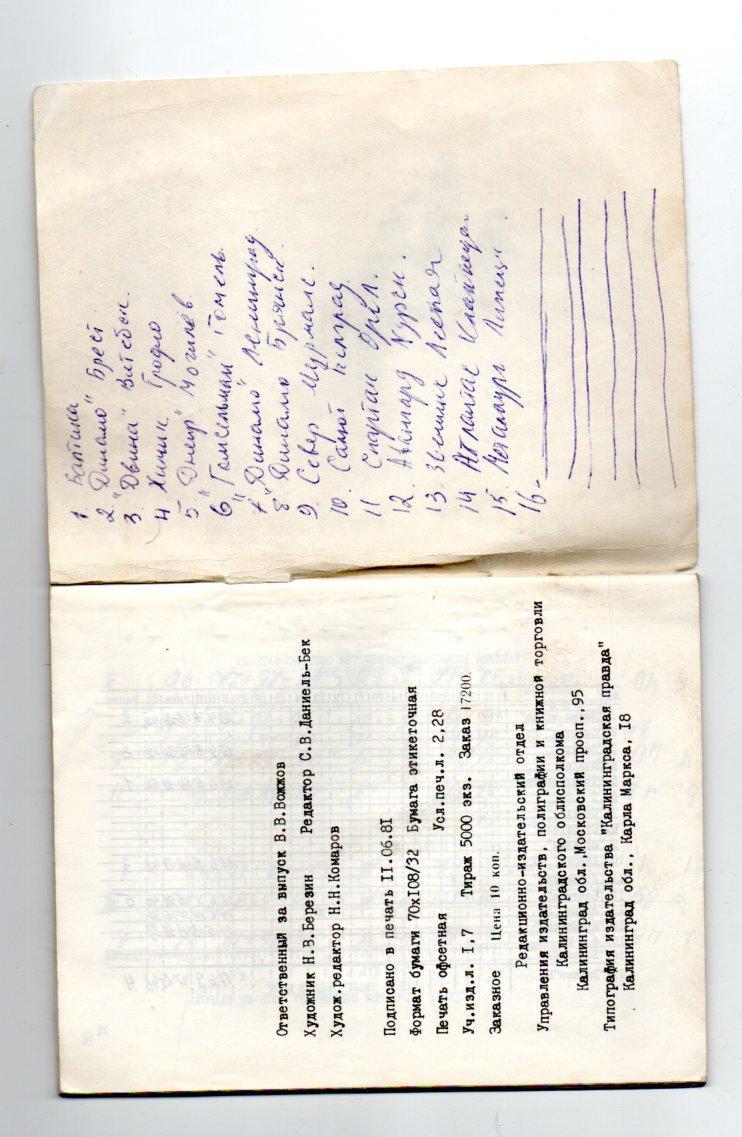 Ответственный за выпуск В.В.Вожжов
Художник Н.В.Березин Редактор С.В.Даниель-Бек
Худож.редактор Н.Н.Комаров
Подписано в печать II.06.8I
Формат бумаги 70хI08/32 Бумага этикеточная
Печать офсетная Усл.печ.л. 2,28
Уч.изд.л. I,7 Тираж 5000 экз. Заказ 17200.
Заказное Цена 10 коп.
Редакционно-издательский отдел
Управления издательств, полиграфии и книжной торговли
Калининградского облисполкома
Калининград обл.,Московский просп.,95
Типография издательства "Калининградская правда"
Калининград обл., Карла Маркса, I8
1 Балтика
2. "Динамо" Брест.
3. "Двина" Витебск.
4 Химик Гродно
5 "Днепр" Могилев
6 "Гомсельмаш" Гомель
7 "Динамо" Ленинград
8 Динамо Брянск.
9 Север Мурманс.
10. Салют Белград
11 Спартак Орел.
12. Авангард Курск.
13. Звейниекс Лиепая
14 Атлантас Клайпеда
15. Металлург Липецк.
16-